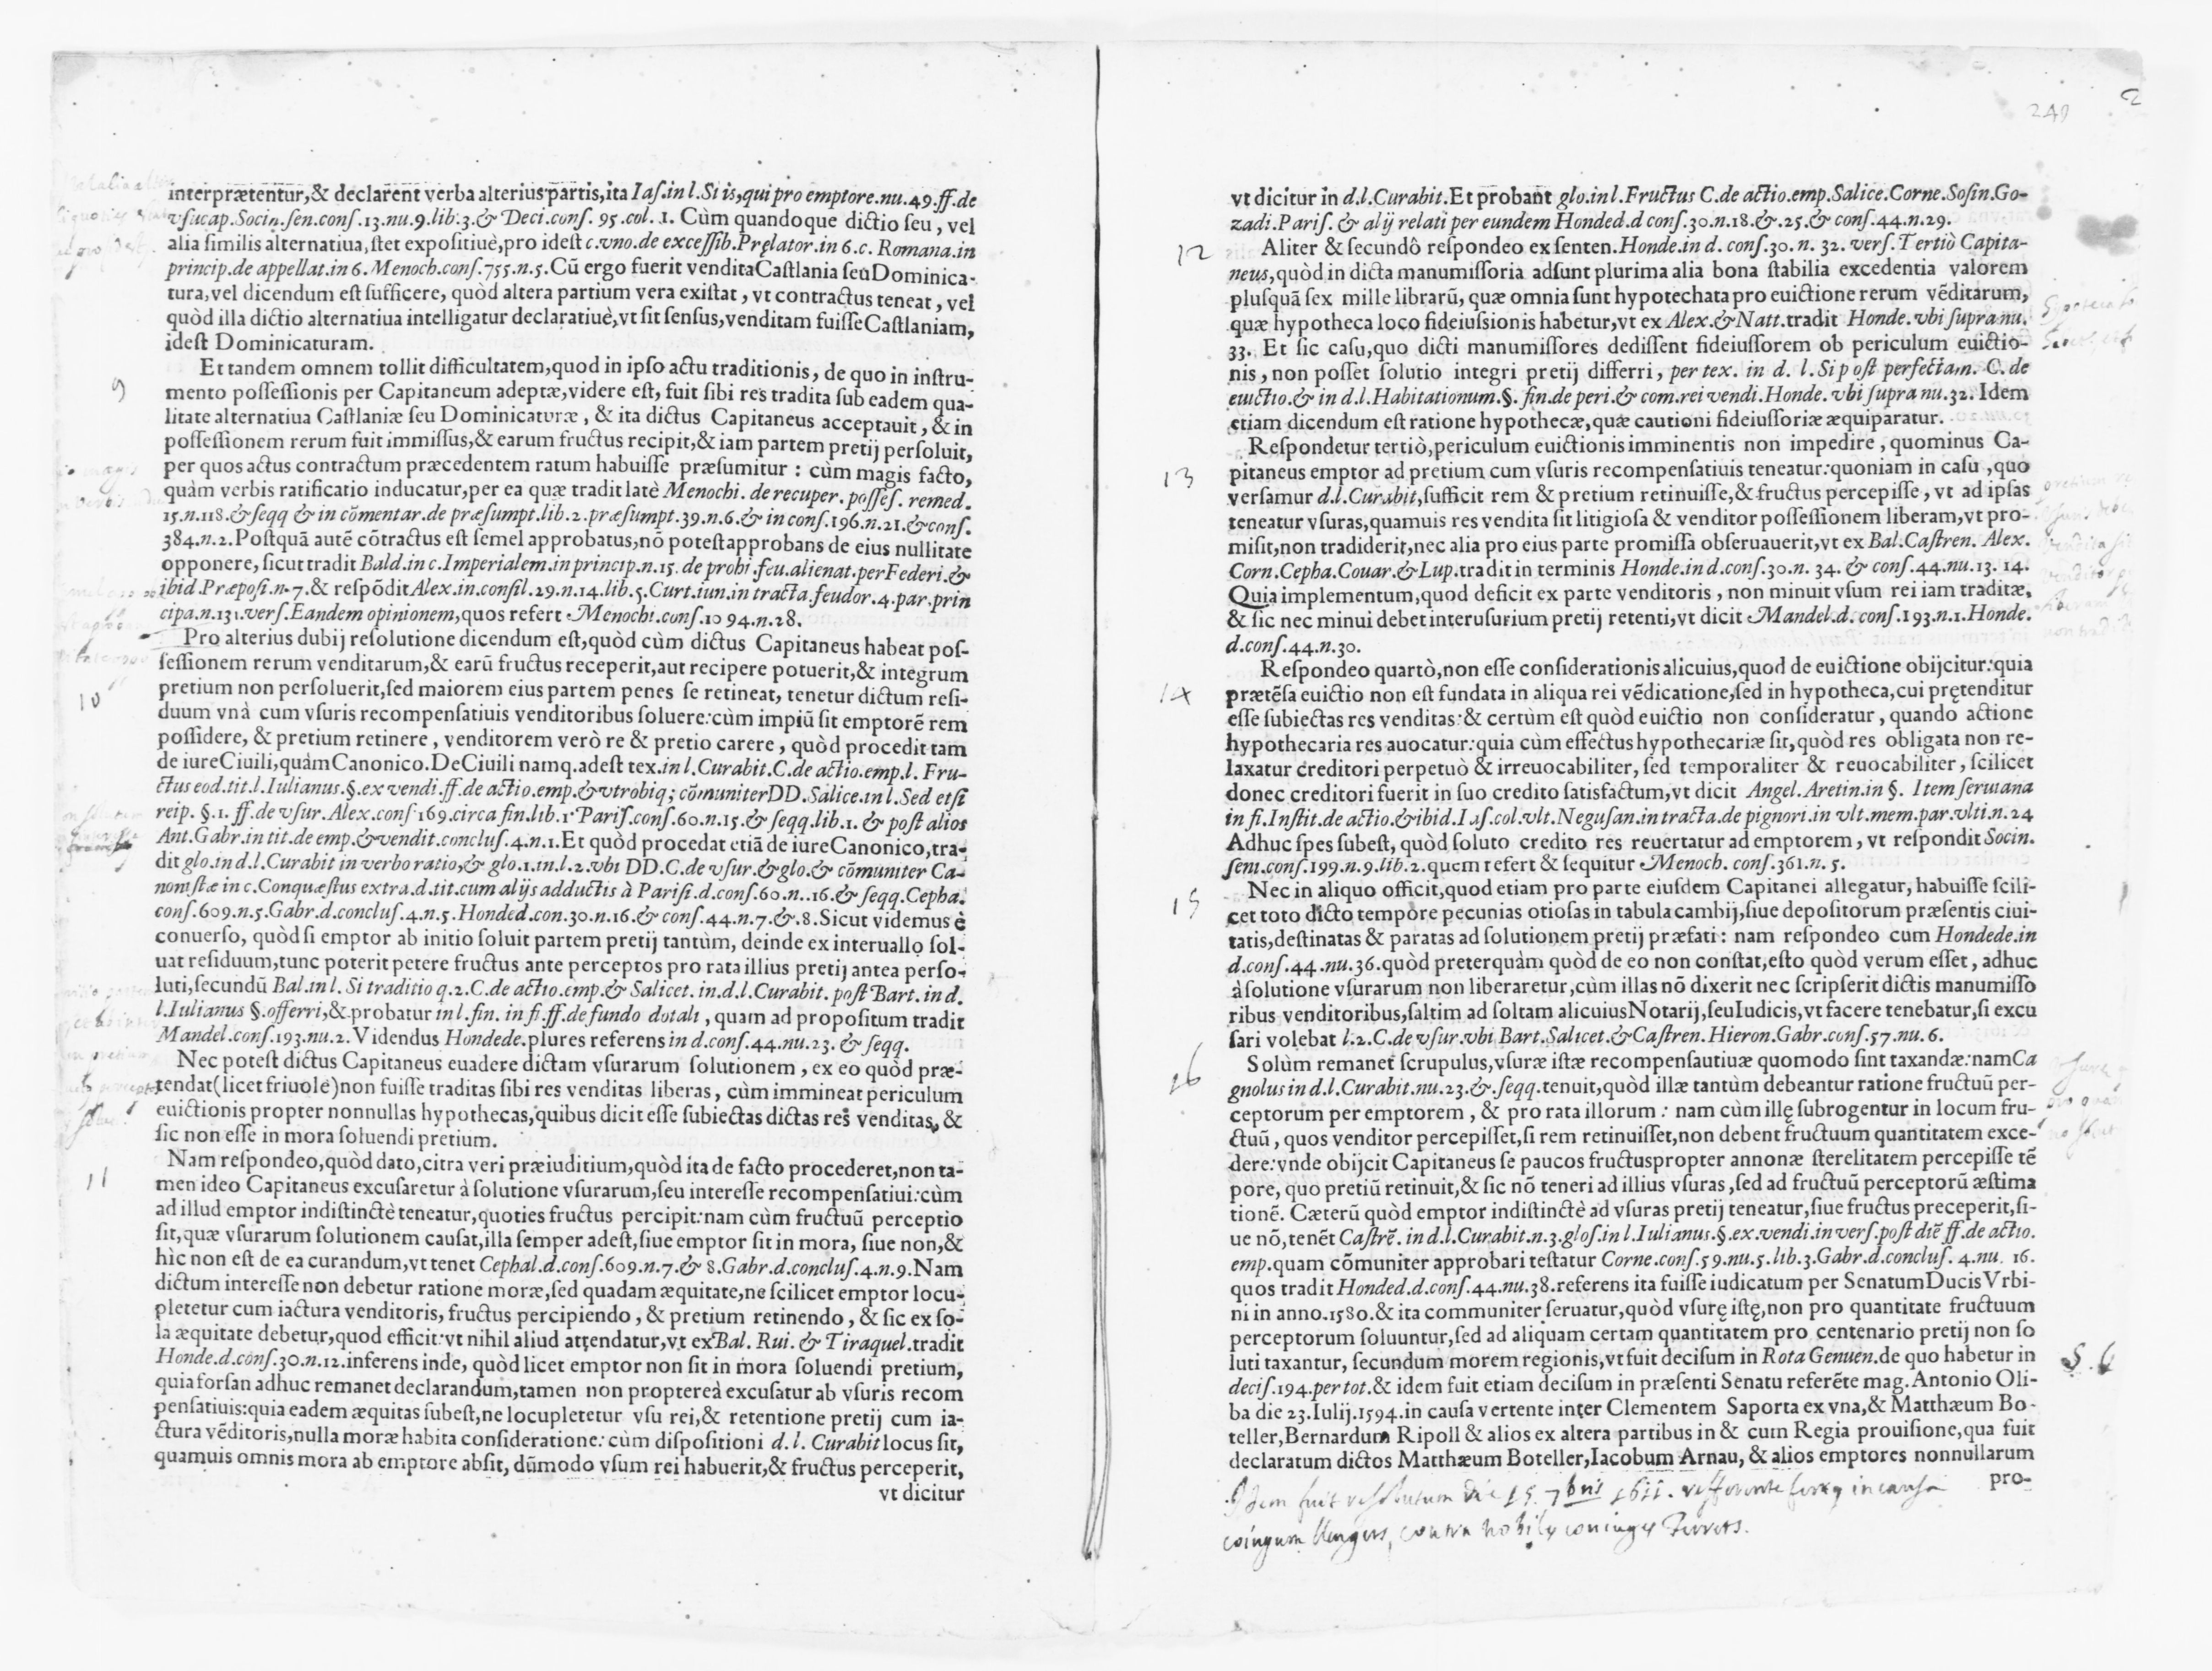 interprætentur,& declarent verba alterius partis,ita Iaſ.in l.Si is,qui pro emptore.nu.49.ff.de
vſucap.Socin.ſen.conſ.13.nu.9.lib.3.& Deci.conſ. 95.col. 1. Cùm quandoque dictio ſeu, vel
alia ſimilis alternatiua,ſtet expoſitiuè,pro ideſt c.vno.de exceſſib.Pręlator.in 6.c. Romana.in
princip.de appellat.in 6. Menoch.conſ.755.n.5.Cū ergo fuerit vendita Caſtlania ſeu Dominica-
tura,vel dicendum eſt ſufficere, quòd altera partium vera exiſtat, vt contractus teneat, vel
quòd illa dictio alternatiua intelligatur declaratiuè,vt ſit ſenſus,venditam fuiſſe Caſtlaniam,
ideſt Dominicaturam.
9
Et tandem omnem tollit difficultatem,quod in ipſo actu traditionis, de quo in inſtru-
mento poſſeſſionis per Capitaneum adeptæ,videre eſt, fuit ſibi res tradita ſub eadem qua-
litate alternatiua Caſtlaniæ ſeu Dominicaturæ, & ita dictus Capitaneus acceptauit, & in
poſſeſſionem rerum fuit immiſſus,& earum fructus recipit,& iam partem pretij perſoluit,
per quos actus contractum præcedentem ratum habuiſſe præſumitur : cùm magis facto,
quàm verbis ratificatio inducatur,per ea quæ tradit latè Menochi. de recuper. poſſeſ. remed.
15.n.118.& ſeqq & in cōmentar.de præſumpt.lib.2.præſumpt.39.n.6.& in conſ.196.n.21.& conſ.
384.n.2.Poſtquā autē cōtractus eſt ſemel approbatus,nō poteſt approbans de eius nullitate
opponere, ſicut tradit Bald.in c.Imperialem.in princip.n.15. de prohi.feu.alienat.per Federi.&
ibid.Præpoſi.n.7.& reſpōdit Alex.in.conſil.29.n.14.lib.5.Curt.iun.in tracta.feudor.4.par.prin
cipa.n.131.verſ.Eandem opinionem,quos refert Menochi.conſ.1094.n.28.
Pro alterius dubij reſolutione dicendum eſt,quòd cùm dictus Capitaneus habeat poſ-
ſeſſionem rerum venditarum,& earū fructus receperit,aut recipere potuerit,& integrum
10
pretium non perſoluerit,ſed maiorem eius partem penes ſe retineat, tenetur dictum reſi-
duum vnà cum vſuris recompenſatiuis venditoribus ſoluere:cùm impiū ſit emptorē rem
poſſidere, & pretium retinere, venditorem verò re & pretio carere, quòd procedit tam
de iure Ciuili,quàm Canonico.De Ciuili namq.adeſt tex.in l.Curabit.C.de actio.emp.l. Fru-
ctus eod.tit.l.Iulianus.§.ex vendi.ff.de actio.emp.& vtrobiq; cōmuniter DD.Salice.in l.Sed etſi
reip. §.1. ff.de vſur. Alex.conſ 169.circa fin.lib.1. Pariſ.conſ.60.n.15.& ſeqq.lib.1. & poſt alios
Ant.Gabr.in tit.de emp.& vendit.concluſ.4.n.1.Et quòd procedat etiā de iure Canonico,tra-
dit glo.in d.l.Curabit in verbo ratio,& glo.1.in.l.2.vbi DD.C.de vſur.& glo.& cōmuniter Ca-
noniſtæ in c.Conquæſtus extra.d.tit.cum alijs adductis à Pariſi.d.conſ.60.n..16.& ſeqq.Cepha.
conſ.609.n.5.Gabr.d.concluſ.4.n.5.Honded.con.30.n.16.& conſ.44.n.7.&.8.Sicut videmus è
conuerſo, quòd ſi emptor ab initio ſoluit partem pretij tantùm, deinde ex interuallo ſol-
uat reſiduum,tunc poterit petere fructus ante perceptos pro rata illius pretij antea perſo-
luti,ſecundū Bal.in l. Si traditio q.2.C.de actio.emp.& Salicet. in.d.l.Curabit. poſt Bart. in d.
l.Iulianus §.offerri,& probatur in l.fin. in fi.ff.de fundo dotali, quam ad propoſitum tradit
Mandel.conſ.193.nu.2.Videndus Hondede.plures referens in d.conſ.44.nu.23. & ſeqq.
Nec poteſt dictus Capitaneus euadere dictam vſurarum ſolutionem, ex eo quòd præ-
tendat(licet friuole)non fuiſſe traditas ſibi res venditas liberas, cùm immineat periculum
euictionis propter nonnullas hypothecas,quibus dicit eſſe ſubiectas dictas res venditas, &
ſic non eſſe in mora ſoluendi pretium.
11
Nam reſpondeo,quòd dato,citra veri præiuditium,quòd ita de facto procederet,non ta-
men ideo Capitaneus excuſaretur à ſolutione vſurarum,ſeu intereſſe recompenſatiui:cùm
ad illud emptor indiſtinctè teneatur,quoties fructus percipit:nam cùm fructuū perceptio
ſit,quæ vſurarum ſolutionem cauſat,illa ſemper adeſt,ſiue emptor ſit in mora, ſiue non,&
hìc non eſt de ea curandum,vt tenet Cephal.d.conſ.609.n.7.& 8.Gabr.d.concluſ.4.n.9.Nam
dictum intereſſe non debetur ratione moræ,ſed quadam æquitate,ne ſcilicet emptor locu-
pletetur cum iactura venditoris, fructus percipiendo, & pretium retinendo, & ſic ex ſo-
la æquitate debetur,quod efficit:vt nihil aliud attendatur,vt ex Bal. Rui. & Tiraquel.tradit
Honde.d.conſ.30.n.12.inferens inde, quòd licet emptor non ſit in mora ſoluendi pretium,
quia forſan adhuc remanet declarandum,tamen non proptereà excuſatur ab vſuris recom
penſatiuis:quia eadem æquitas ſubeſt,ne locupletetur vſu rei,& retentione pretij cum ia-
ctura vēditoris,nulla moræ habita conſideratione: cùm diſpoſitioni d.l. Curabit locus ſit,
quamuis omnis mora ab emptore abſit, dūmodo vſum rei habuerit,& fructus perceperit,
vt dicitur
249 2
vt dicitur in d.l.Curabit.Et probant glo.in l.Fructus C.de actio.emp.Salice.Corne.Soſin.Go-
zadi.Pariſ. & alij relati per eundem Honded.d conſ.30.n.18.&.25.& conſ.44.n.29.
12
Aliter & ſecundô reſpondeo ex ſenten.Honde.in d. conſ.30.n. 32. verſ.Tertiò Capita-
neus,quòd in dicta manumiſſoria adſunt plurima alia bona ſtabilia excedentia valorem
pluſquā ſex mille librarū, quæ omnia ſunt hypotechata pro euictione rerum vēditarum,
quæ hypotheca loco fideiuſsionis habetur,vt ex Alex.& Natt.tradit Honde.vbi ſupra nu.
33. Et ſic caſu,quo dicti manumiſſores dediſſent fideiuſſorem ob periculum euictio-
nis, non poſſet ſolutio integri pretij differri, per tex. in d. l. Si poſt perfectam. C. de
euictio.& in d.l.Habitationum.§. fin.de peri.& com.rei vendi.Honde. vbi ſupra nu.32. Idem
etiam dicendum eſt ratione hypothecæ,quæ cautioni fideiuſſoriæ æquiparatur.
13
Reſpondetur tertiò,periculum euictionis imminentis non impedire, quominus Ca-
pitaneus emptor ad pretium cum vſuris recompenſatiuis teneatur:quoniam in caſu,quo
verſamur d.l.Curabit,ſufficit rem & pretium retinuiſſe,& fructus percepiſſe, vt ad ipſas
teneatur vſuras,quamuis res vendita ſit litigioſa & venditor poſſeſſionem liberam,vt pro-
miſit,non tradiderit,nec alia pro eius parte promiſſa obſeruauerit,vt ex Bal.Caſtren. Alex.
Corn.Cepha.Couar.& Lup.tradit in terminis Honde.in d.conſ.30.n. 34. & conſ.44.nu.13. 14.
Quia implementum,quod deficit ex parte venditoris, non minuit vſum rei iam traditæ,
& ſic nec minui debet interuſurium pretij retenti,vt dicit Mandel.d. conſ.193.n.1.Honde.
d.conſ.44.n.30.
14
Reſpondeo quartò,non eſſe conſiderationis alicuius,quod de euictione obijcitur:quia
prætēſa euictio non eſt fundata in aliqua rei vēdicatione,ſed in hypotheca,cui prętenditur
eſſe ſubiectas res venditas:& certùm eſt quòd euictio non conſideratur, quando actione
hypothecaria res auocatur:quia cùm effectus hypothecariæ ſit,quòd res obligata non re-
laxatur creditori perpetuò & irreuocabiliter, ſed temporaliter & reuocabiliter, ſcilicet
donec creditori fuerit in ſuo credito ſatisfactum,vt dicit Angel.Aretin.in §. Item ſeruiana
in fi.Inſtit.de actio.& ibid.Iaſ.col.vlt.Neguſan.in tracta.de pignori.in vlt.mem.par.vlti.n.24
Adhuc ſpes ſubeſt, quòd ſoluto credito res reuertatur ad emptorem, vt reſpondit Socin.
ſeni.conſ.199.n.9.lib.2.quem refert & ſequitur Menoch. conſ.361.n. 5.
15
Nec in aliquo officit,quod etiam pro parte eiuſdem Capitanei allegatur, habuiſſe ſcili-
cet toto dicto tempore pecunias otioſas in tabula cambij,ſiue depoſitorum præſentis ciui-
tatis,deſtinatas & paratas ad ſolutionem pretij præfati: nam reſpondeo cum Hondede.in
d.conſ.44.nu.36.quòd preterquàm quòd de eo non conſtat,eſto quòd verum eſſet, adhuc
à ſolutione vſurarum non liberaretur,cùm illas nō dixerit nec ſcripſerit dictis manumiſſo
ribus venditoribus,ſaltim ad ſoltam alicuius Notarij,ſeu Iudicis,vt facere tenebatur,ſi excu
ſari volebat l.2. C.de vſur.vbi Bart.Salicet.& Caſtren.Hieron.Gabr.conſ.57.nu. 6.
16
Solùm remanet ſcrupulus,vſuræ iſtæ recompenſautiuæ quomodo ſint taxandæ:nam Ca
gnolus in d.l.Curabit.nu.23.&.ſeqq.tenuit,quòd illæ tantùm debeantur ratione fructuū per-
ceptorum per emptorem, & pro rata illorum : nam cùm illę ſubrogentur in locum fru-
ctuū, quos venditor percepiſſet,ſi rem retinuiſſet,non debent fructuum quantitatem exce-
dere:vnde obijcit Capitaneus ſe paucos fructus propter annonæ ſterelitatem percepiſſe tē
pore, quo pretiū retinuit,& ſic nō teneri ad illius vſuras,ſed ad fructuū perceptorū æſtima
tionē. Cæterū quòd emptor indiſtinctè ad vſuras pretij teneatur,ſiue fructus preceperit,ſi-
ue nō,tenēt Caſtrē. in d.l.Curabit.n.3.gloſ.in l.Iulianus.§.ex.vendi.in verſ.poſt diē ff.de actio.
emp.quam cōmuniter approbari teſtatur Corne.conſ.59.nu.5.lib.3.Gabr.d.concluſ. 4.nu. 16.
quos tradit Honded.d.conſ.44.nu.38.referens ita fuiſſe iudicatum per Senatum Ducis Vrbi-
ni in anno.1580.& ita communiter ſeruatur,quòd vſurę iſtę,non pro quantitate fructuum
perceptorum ſoluuntur,ſed ad aliquam certam quantitatem pro centenario pretij non ſo
luti taxantur, ſecundum morem regionis,vt fuit deciſum in Rota Genuen.de quo habetur in
deciſ.194.per tot.& idem fuit etiam deciſum in præſenti Senatu referēte mag.Antonio Oli-
ba die 23.Iulij.1594.in cauſa vertente inter Clementem Saporta ex vna,& Matthæum Bo-
teller,Bernardum Ripoll & alios ex altera partibus in & cum Regia prouiſione,qua fuit
declaratum dictos Matthæum Boteller,Iacobum Arnau, & alios emptores nonnullarum
pro-
Idem fuit die 15 7bris 1611. refferente in causa
contra nobiles coniuges